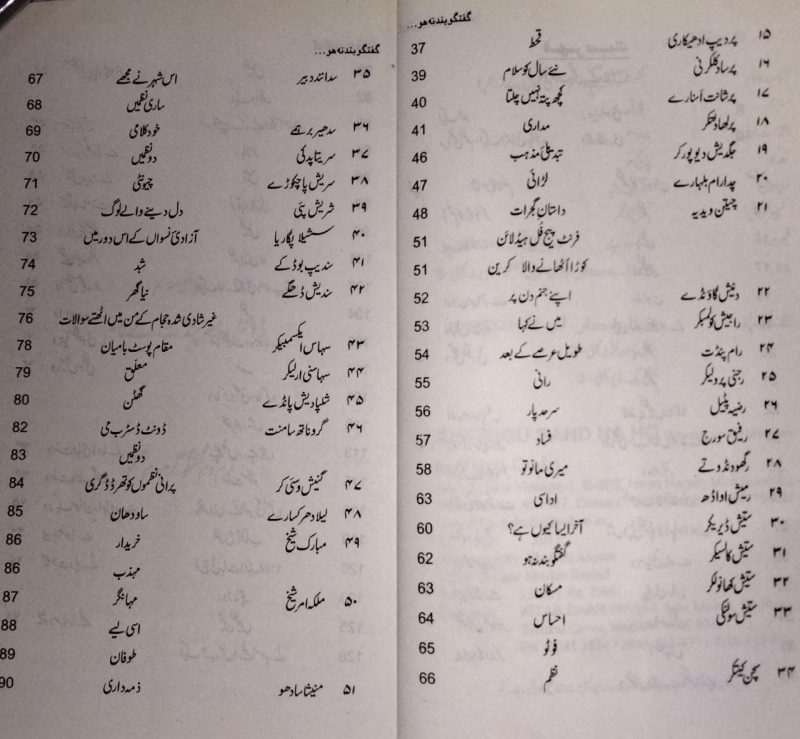 گفتگو بند نہ ھو...
۱۵ پردیپ ادھیکاری قحط 37
۱۶ پرساد کلکرنی نئے سال کو سلام 39
۱۷ پرشانت اسنارے کچھ پتہ نہیں چلتا 40
۱۸ پرلھاد لنکر مداری 41
۱۹ جگدیش دیوپورکر تبدیلیٔ مذہب 46
۲۰ چدارام بلہارے لڑائی 47
۲۱ چیتن ویدیہ داستان گجرات 48
فرنٹ پیج فُل ہیڈلائن 51
کوڑا اُٹھانے والا کرین 51
۲۲ دنیش گاؤنڈے اپنے جنم دن پر 52
۲۳ راجیش کولمبکر میں نے کہا 53
۲۴ رام پنڈت طویل عرصے کے بعد 54
۲۵ رجنی پرولیکر رانی 55
۲۶ رضیہ پٹیل سرحد پار 56
۲۷ رفیق سورج فساد 57
۲۸ رگھو دنڈوتے میری مانو تو 58
۲۹ رمیش اواڈھ اداسی 63
۳۰ ستیش ڈیریکر آخر ایسا کیوں ہے؟ 60
۳۱ ستیش کالسیکر گفتگو بند نہ ہو 62
۳۲ ستیش کھانولکر مسکان 63
۳۳ ستیش سولنکی احساس 64
فوٹو 65
۳۴ سچن کیتکر نظم 66
گفتگو بند نہ ھو...
۳۵ سدانند دبیر اس شہر نے مجھے 67
ساری نظمیں 68
۳۶ سدھیر برہمے خودکلامی 69
۳۷ سریتا پدکی دو نظمیں 70
۳۸ سریش پاچکوڑے چیونٹی 71
۳۹ شریش پئی دل دینے والے لوگ 72
۴۰ سشیلا پگاریا آزادیٔ نسواں کے اس دور میں 73
۴۱ سندیپ بوڈکے شبد 74
۴۲ سندیش ڈھگے نیا گھر 75
غیر شادی شدہ حجام کے من میں اٹھتے سوالات 76
۴۳ سہاس ایکسمبیکر مقام پوسٹ بامیان 78
۴۴ سہاسنی ارلیکر معلّق 79
۴۵ شلپا دیش پانڈے گھٹن 80
۴۶ گروناتھ سامنت ڈونٹ ڈسٹرب می 82
دو نظمیں 83
۴۷ گنیش وسئی کر پرانی نظموں کو تھرڈ ڈگری 84
۴۸ لیلادھر کسارے ساودھان 85
۴۹ مبارک شیخ خریدار 86
مہذب 86
۵۰ ملکہ امر شیخ مہانگر 87
اسی لیے 88
طوفان 89
۵۱ منیشا سادھو ذمہ داری 90